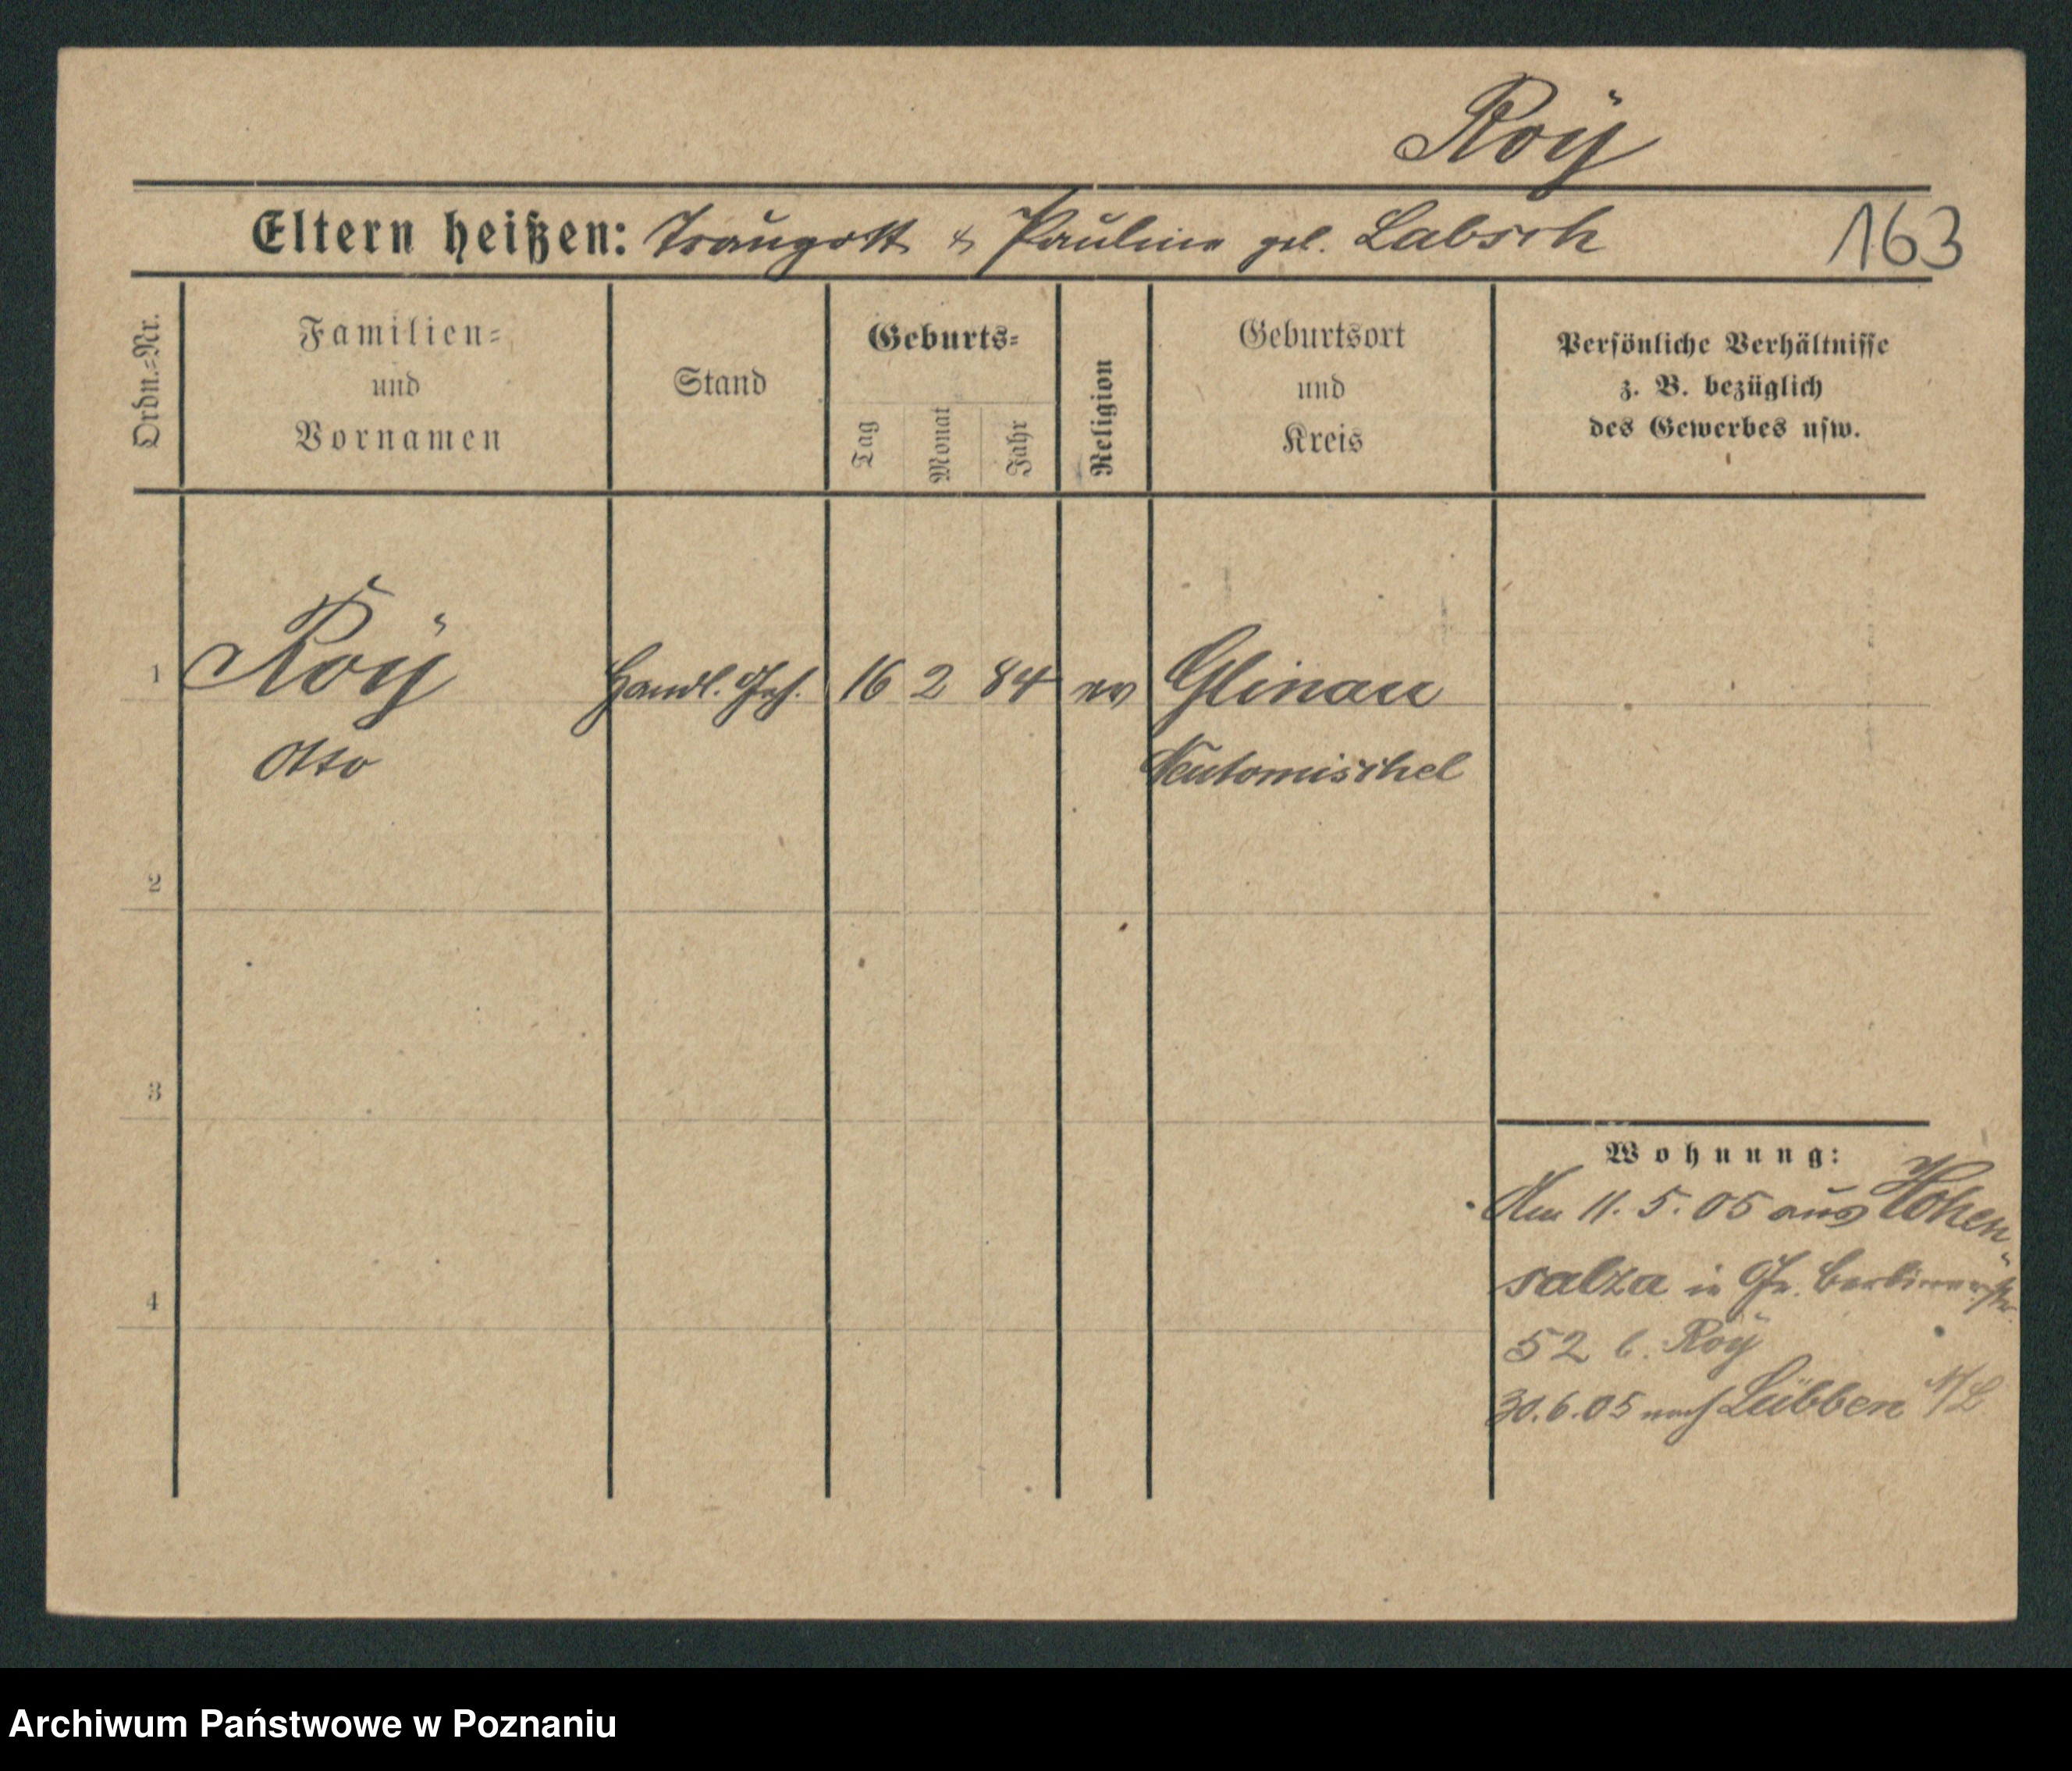 Roÿ
Eltern heißen: Traugott & Pauline geb. Labsch 163
Ordn.=Nr.
Familien=
und
Vornamen
Stand
Geburts=
Tag
Monat
Jahr
Religion
Geburtsort
und
Kreis
Persönliche Verhältnisse
z. B. bezüglich
des Gewerbes usw.
1 Roÿ Handl. Geh. 16 2 84 ev Glinau
Otto Neutomischel
2
3
4
Wohnung:
Am 11. 5. 05 aus Hohen
salza in Gr. Berlinerstr.
52 b. Roÿ
30. 6. 05 nach Lübben N/L
Archiwum Państwowe w Poznaniu